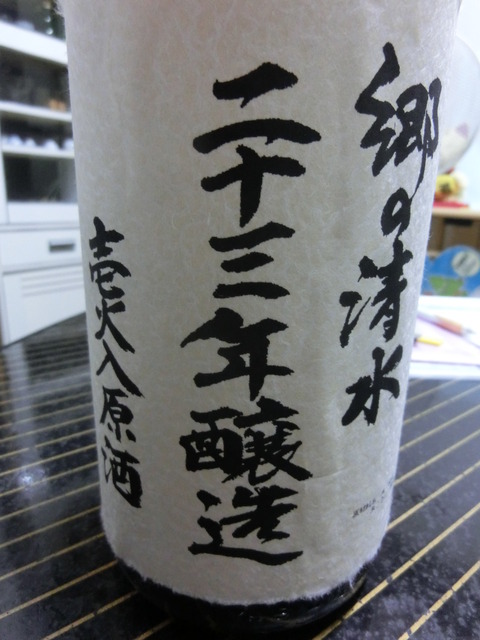 郷の清水
二十三年醸造
壱火入原酒